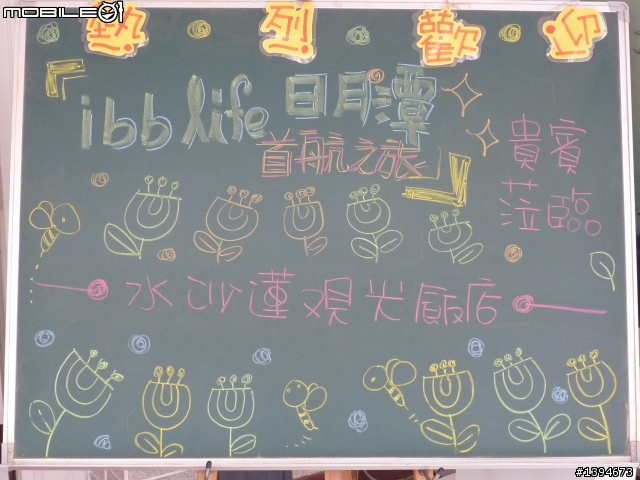 MOBILE01
熱烈歡迎
ibb life 日月潭
首航之旅
貴賓
蒞臨
水沙蓮观光飯店
#1394673